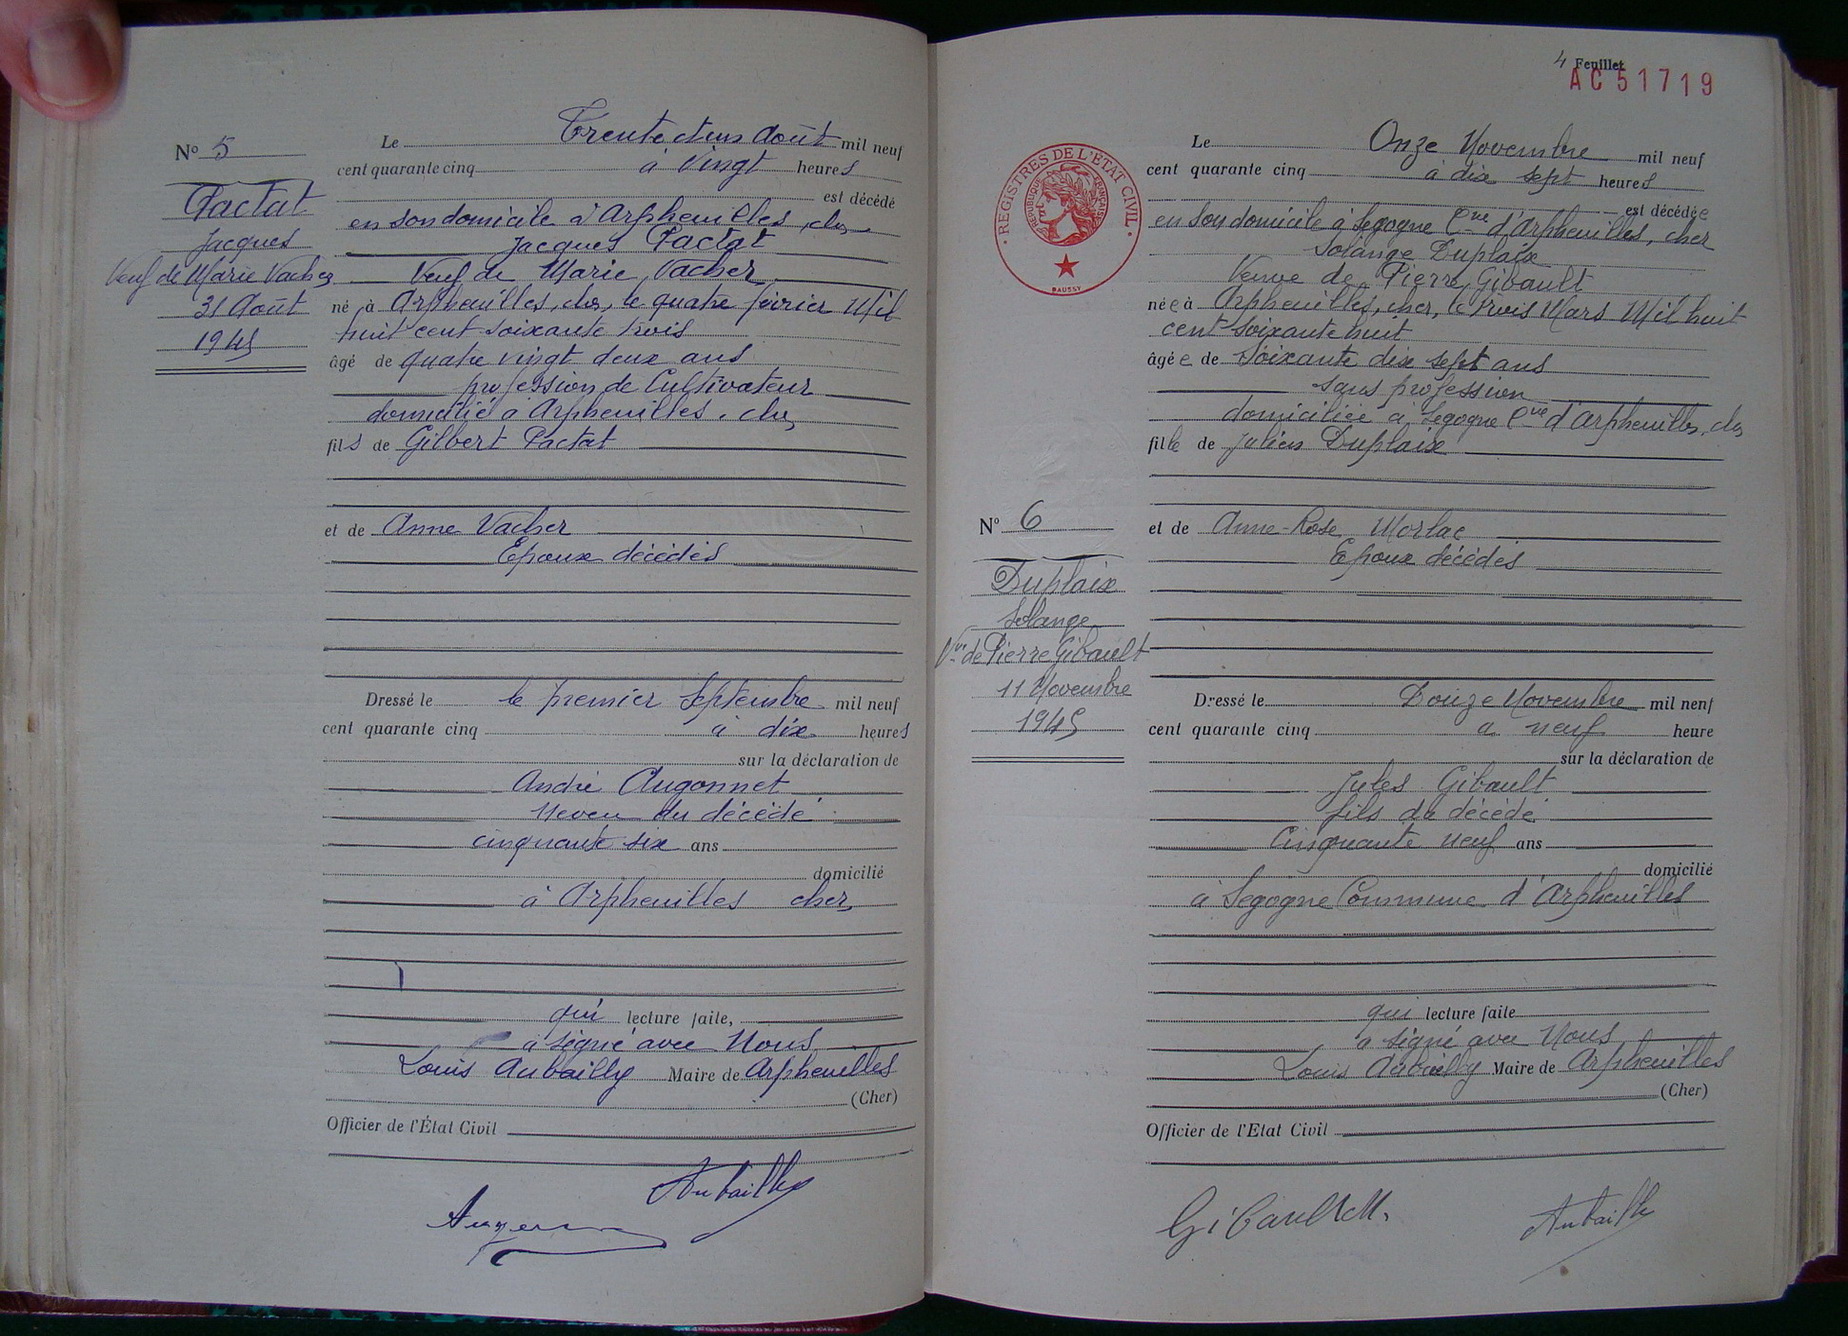 Nº 5
Pactat
Jacques
Veuf de Marie Vacher
31 Août
1945
Le Trente et un Août mil neuf
cent quarante cinq à Vingt heures
est décédé
en son domicile à Arpheuilles, cher
Jacques Pactat
Veuf de Marie Vacher
né à Arpheuilles, cher, le quatre février Mil
huit cent soixante trois
âgé de quatre vingt deux ans
profession de Cultivateur
domicilié à Arpheuilles, cher
fils de Gilbert Pactat
et de Anne Vacher
Epoux décédés
Dressé le le premier Septembre mil neuf
cent quarante cinq à dix heures
sur la déclaration de
André Augonnet
neveu du décédé
cinquante six ans
domicilié
à Arpheuilles cher
qui lecture faite,
a signé avec Nous
Louis Aubailly Maire de Arpheuilles
(Cher)
Officier de l'État Civil
Aubailly
4 Feuillet
AC 51719
REGISTRES DE L'ETAT CIVIL
REPUBLIQUE FRANÇAISE
DAUSSY
Nº 6
Duplaix
Solange
Vve de Pierre Gibault
11 Novembre
1945
Le Onze Novembre mil neuf
cent quarante cinq à dix sept heures
est décédée
en son domicile à Segogne Cne d'Arpheuilles, cher
Solange Duplaix
Veuve de Pierre Gibault
née à Arpheuilles, cher, le trois Mars Mil huit
cent soixante huit
âgée de Soixante dix sept ans
sans profession
domiciliée à Segogne Cne d'Arpheuilles, cher
fille de Julien Duplaix
et de Anne-Rose Morlac
Epoux décédés
Dressé le Douze Novembre mil neuf
cent quarante cinq à neuf heure
sur la déclaration de
Jules Gibault
fils du décédé
Cinquante neuf ans
domicilié
à Segogne Commune d'Arpheuilles
qui lecture faite
a signé avec Nous
Louis Aubailly Maire de Arpheuilles
(Cher)
Officier de l'Etat Civil
Gibault
Aubailly